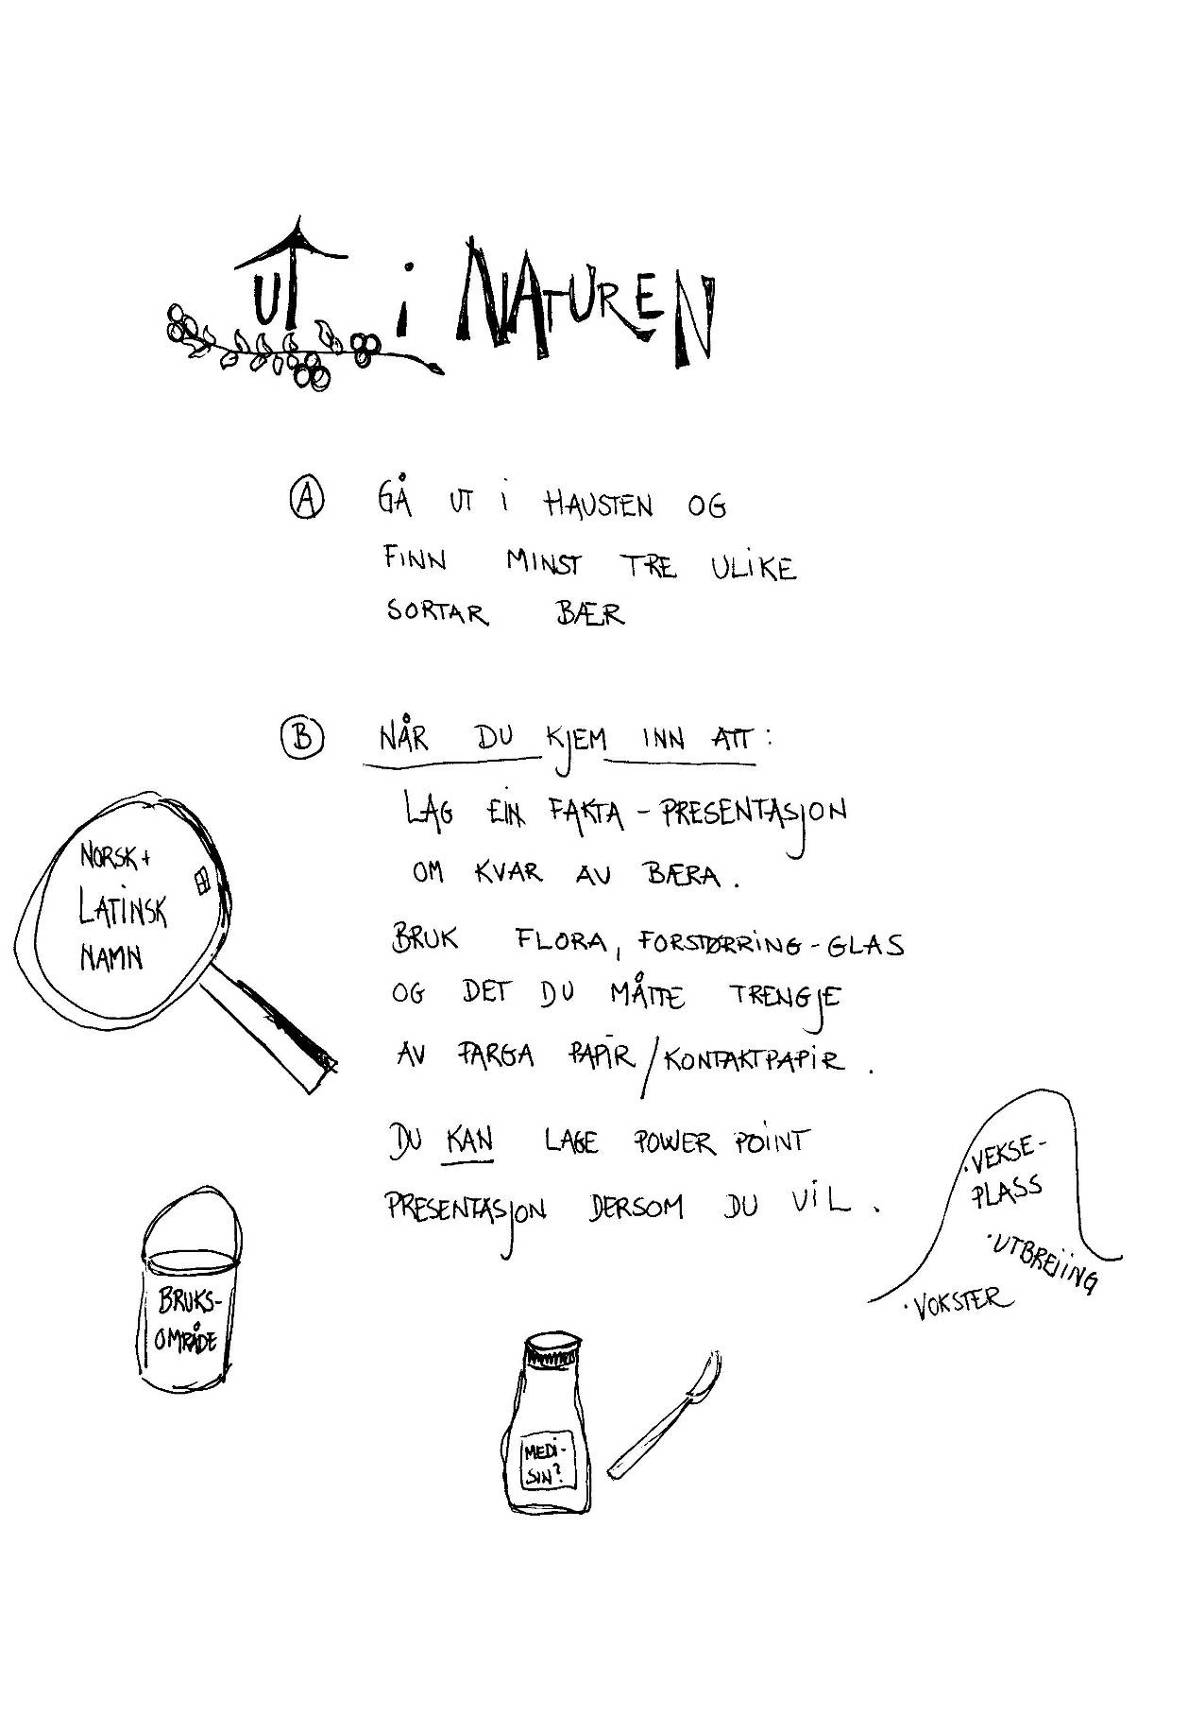 UT i NATUREN
A GÅ UT i HAUSTEN OG
FINN MINST TRE ULIKE
SORTAR BÆR
B NÅR DU KJEM INN ATT:
LAG EIN FAKTA-PRESENTASJON
OM KVAR AV BÆRA.
NORSK+
LATINSK
NAMN
BRUK FLORA, FORSTØRRING-GLAS
OG DET DU MÅTTE TRENGJE
AV FARGA PAPIR/KONTAKTPAPIR.
DU KAN LAGE POWER POINT
PRESENTASJON DERSOM DU VIL.
·VEKSE-
PLASS
·UTBREIING
·VOKSTER
BRUKS-
OMRÅDE
MEDI-
SIN?